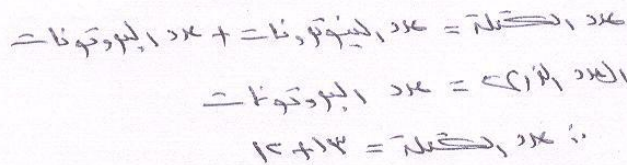 عدد الكتلة = عدد النيوترونات + عدد البروتونات
العدد الذري = عدد البروتونات
∴ عدد الكتلة = ١٣ + ١٢